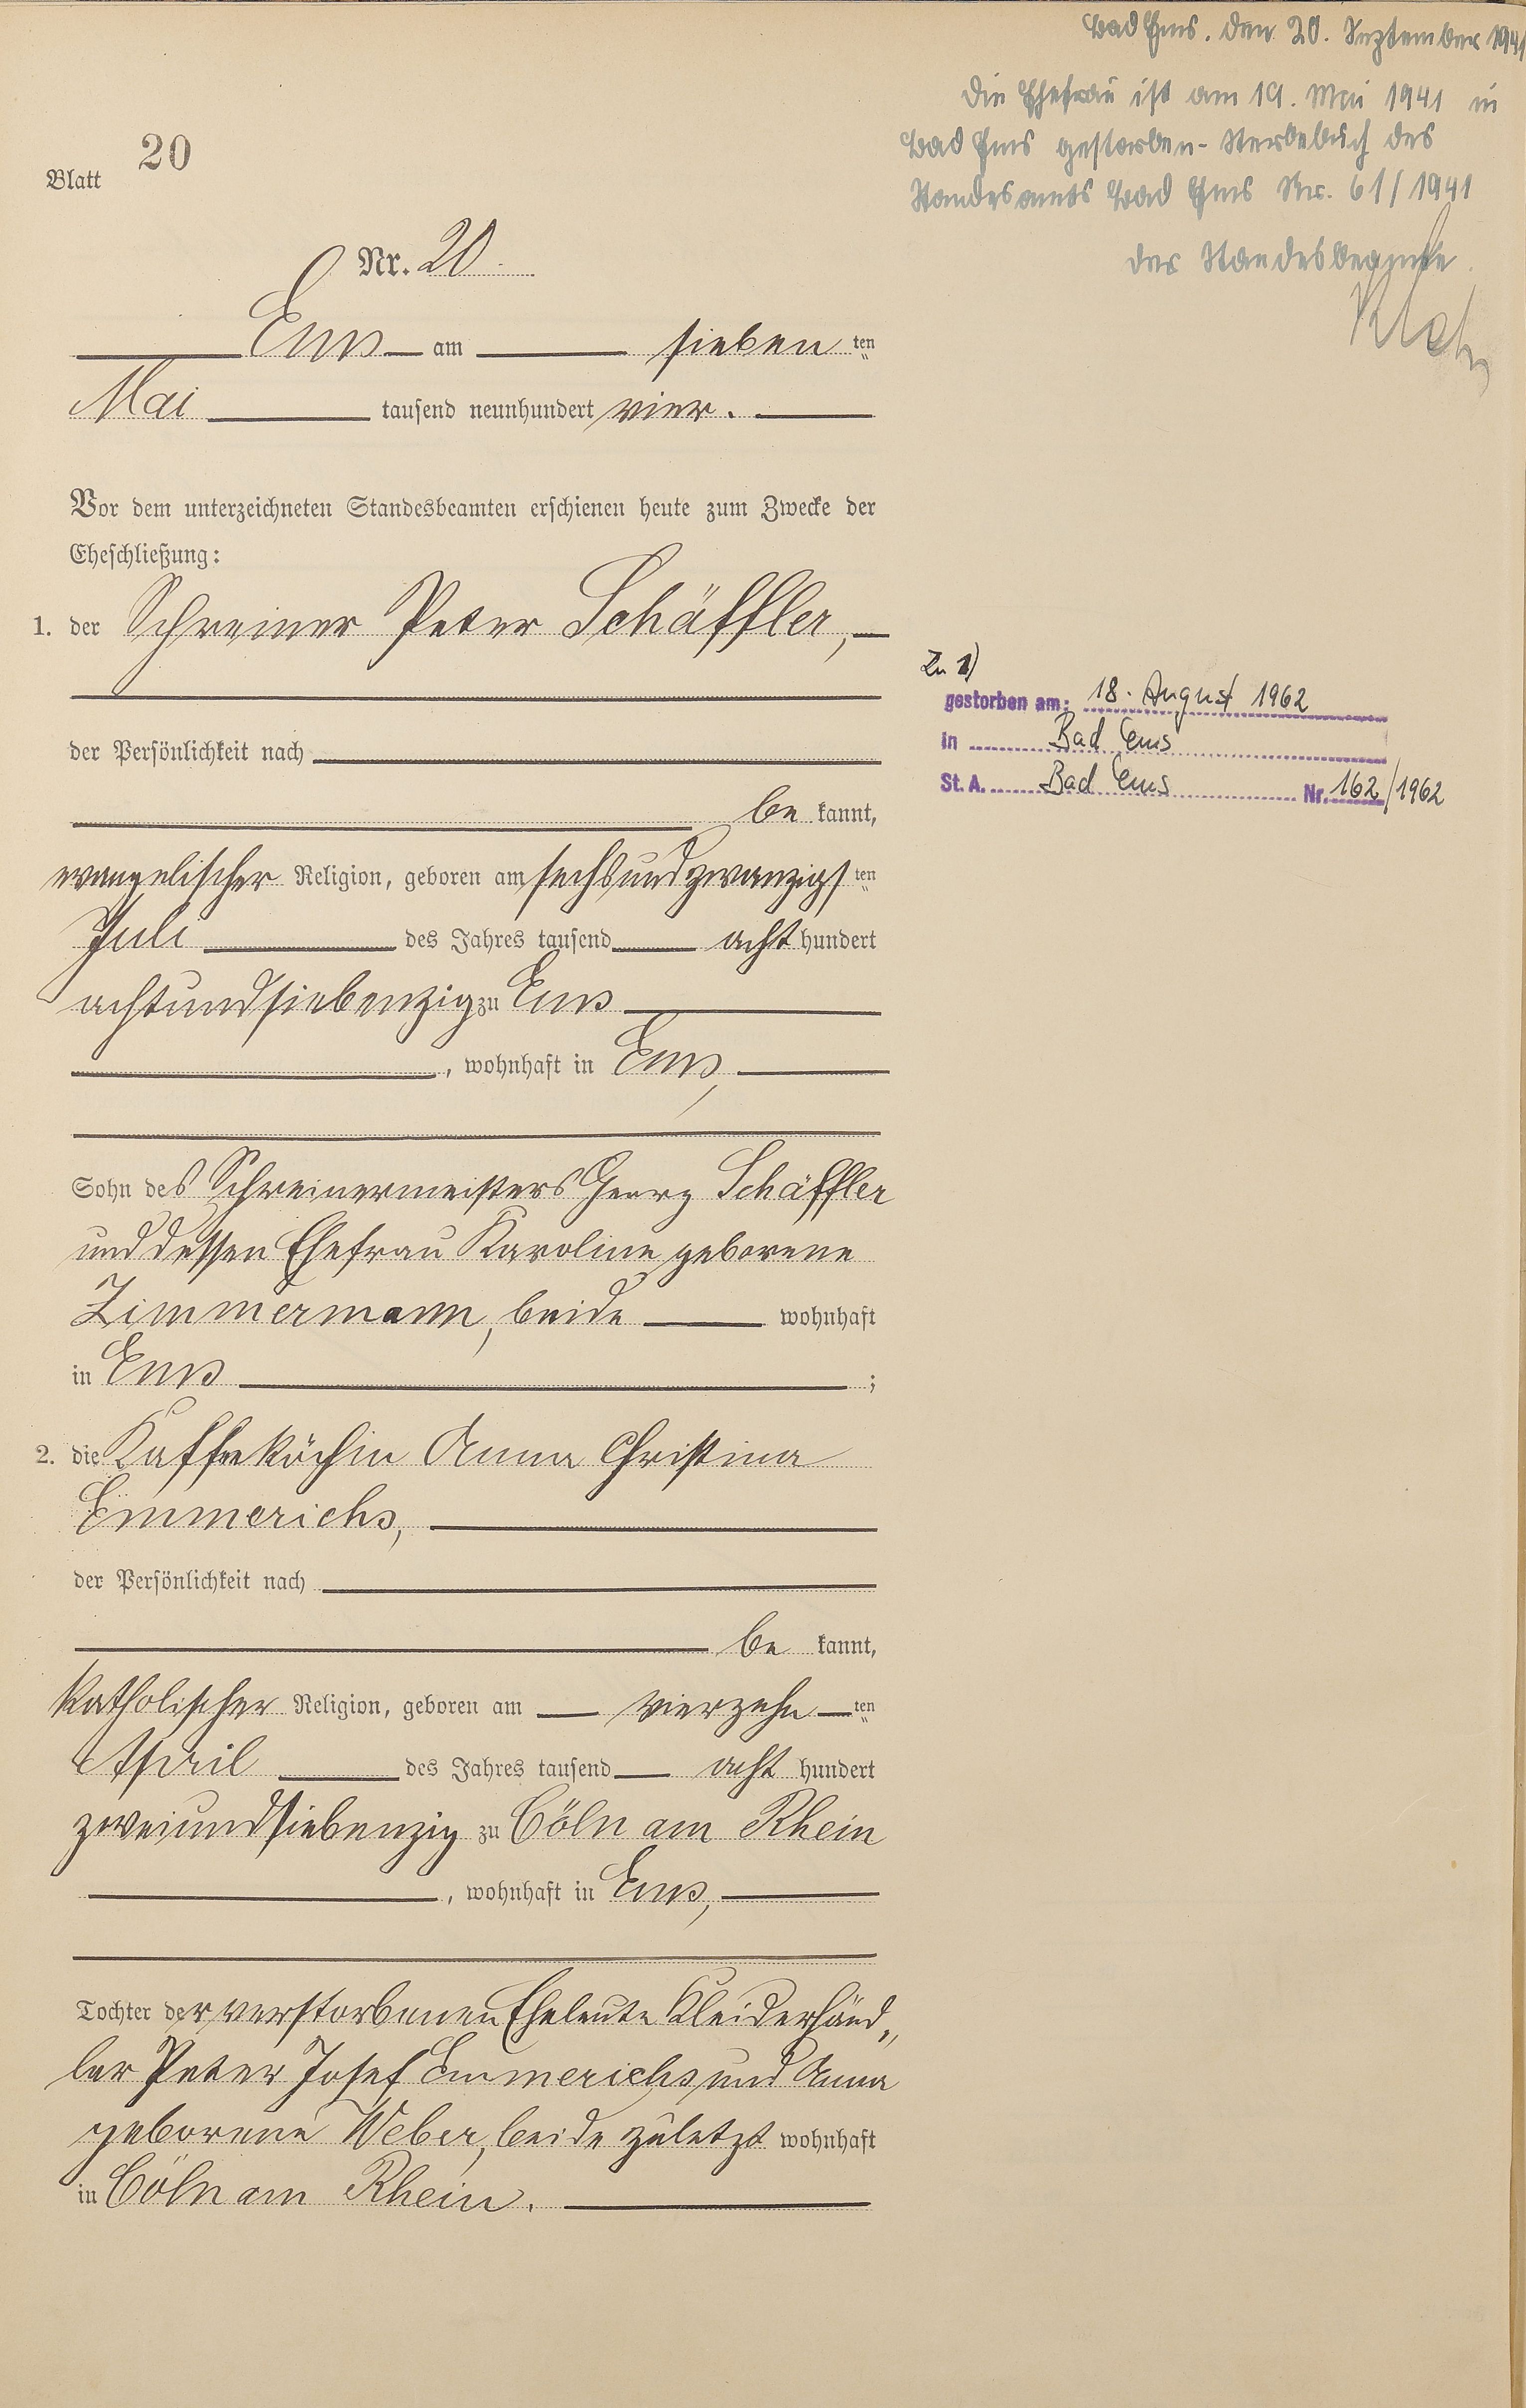 Bad Ems, den 20. September 1941
Die Ehefrau ist am 19. Mai 1941 in
Bad Ems gestorben - Sterbebuch des
Standesamts Bad Ems Nr. 61/1941
Der Standesbeamte
Blatt 20
Nr. 20.
Ems am sieben ten
Mai tausend neunhundert vier.
Vor dem unterzeichneten Standesbeamten erschienen heute zum Zwecke der
Eheschließung:
1. der Schreiner Peter Schäffler,
der Persönlichkeit nach
be kannt,
evangelischer Religion, geboren am sechsundzwanzigs ten
Juli des Jahres tausend acht hundert
achtundsiebenzig zu Ems
, wohnhaft in Ems,
Sohn des Schreinermeisters Georg Schäffler
und dessen Ehefrau Karoline geborene
Zimmermann, beide wohnhaft
in Ems ;
2. die Kaffeeköchin Anna Christina
Emmerichs,
der Persönlichkeit nach
be kannt,
katholischer Religion, geboren am vierzehn ten
April des Jahres tausend acht hundert
zweiundsiebenzig zu Cöln am Rhein
, wohnhaft in Ems,
Tochter der verstorbenen Eheleute Kleiderhänd„
ler Peter Josef Emmerichs und Anna
geborene Weber, beide zuletzt wohnhaft
in Cöln am Rhein.
Zu 1)
gestorben am: 18. August 1962
in Bad Ems
St. A. Bad Ems Nr. 162/1962